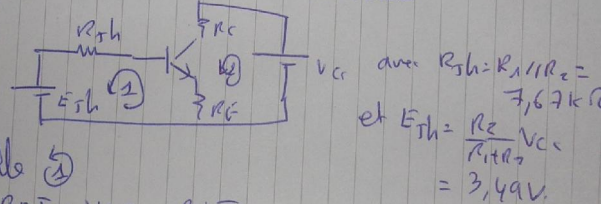 RTh
RC
RE
ETh
1
2
Vcc
avec RTh = R1//R2 =
7,67k
et ETh = R2/(R1+R2) Vcc
= 3,49V.
1